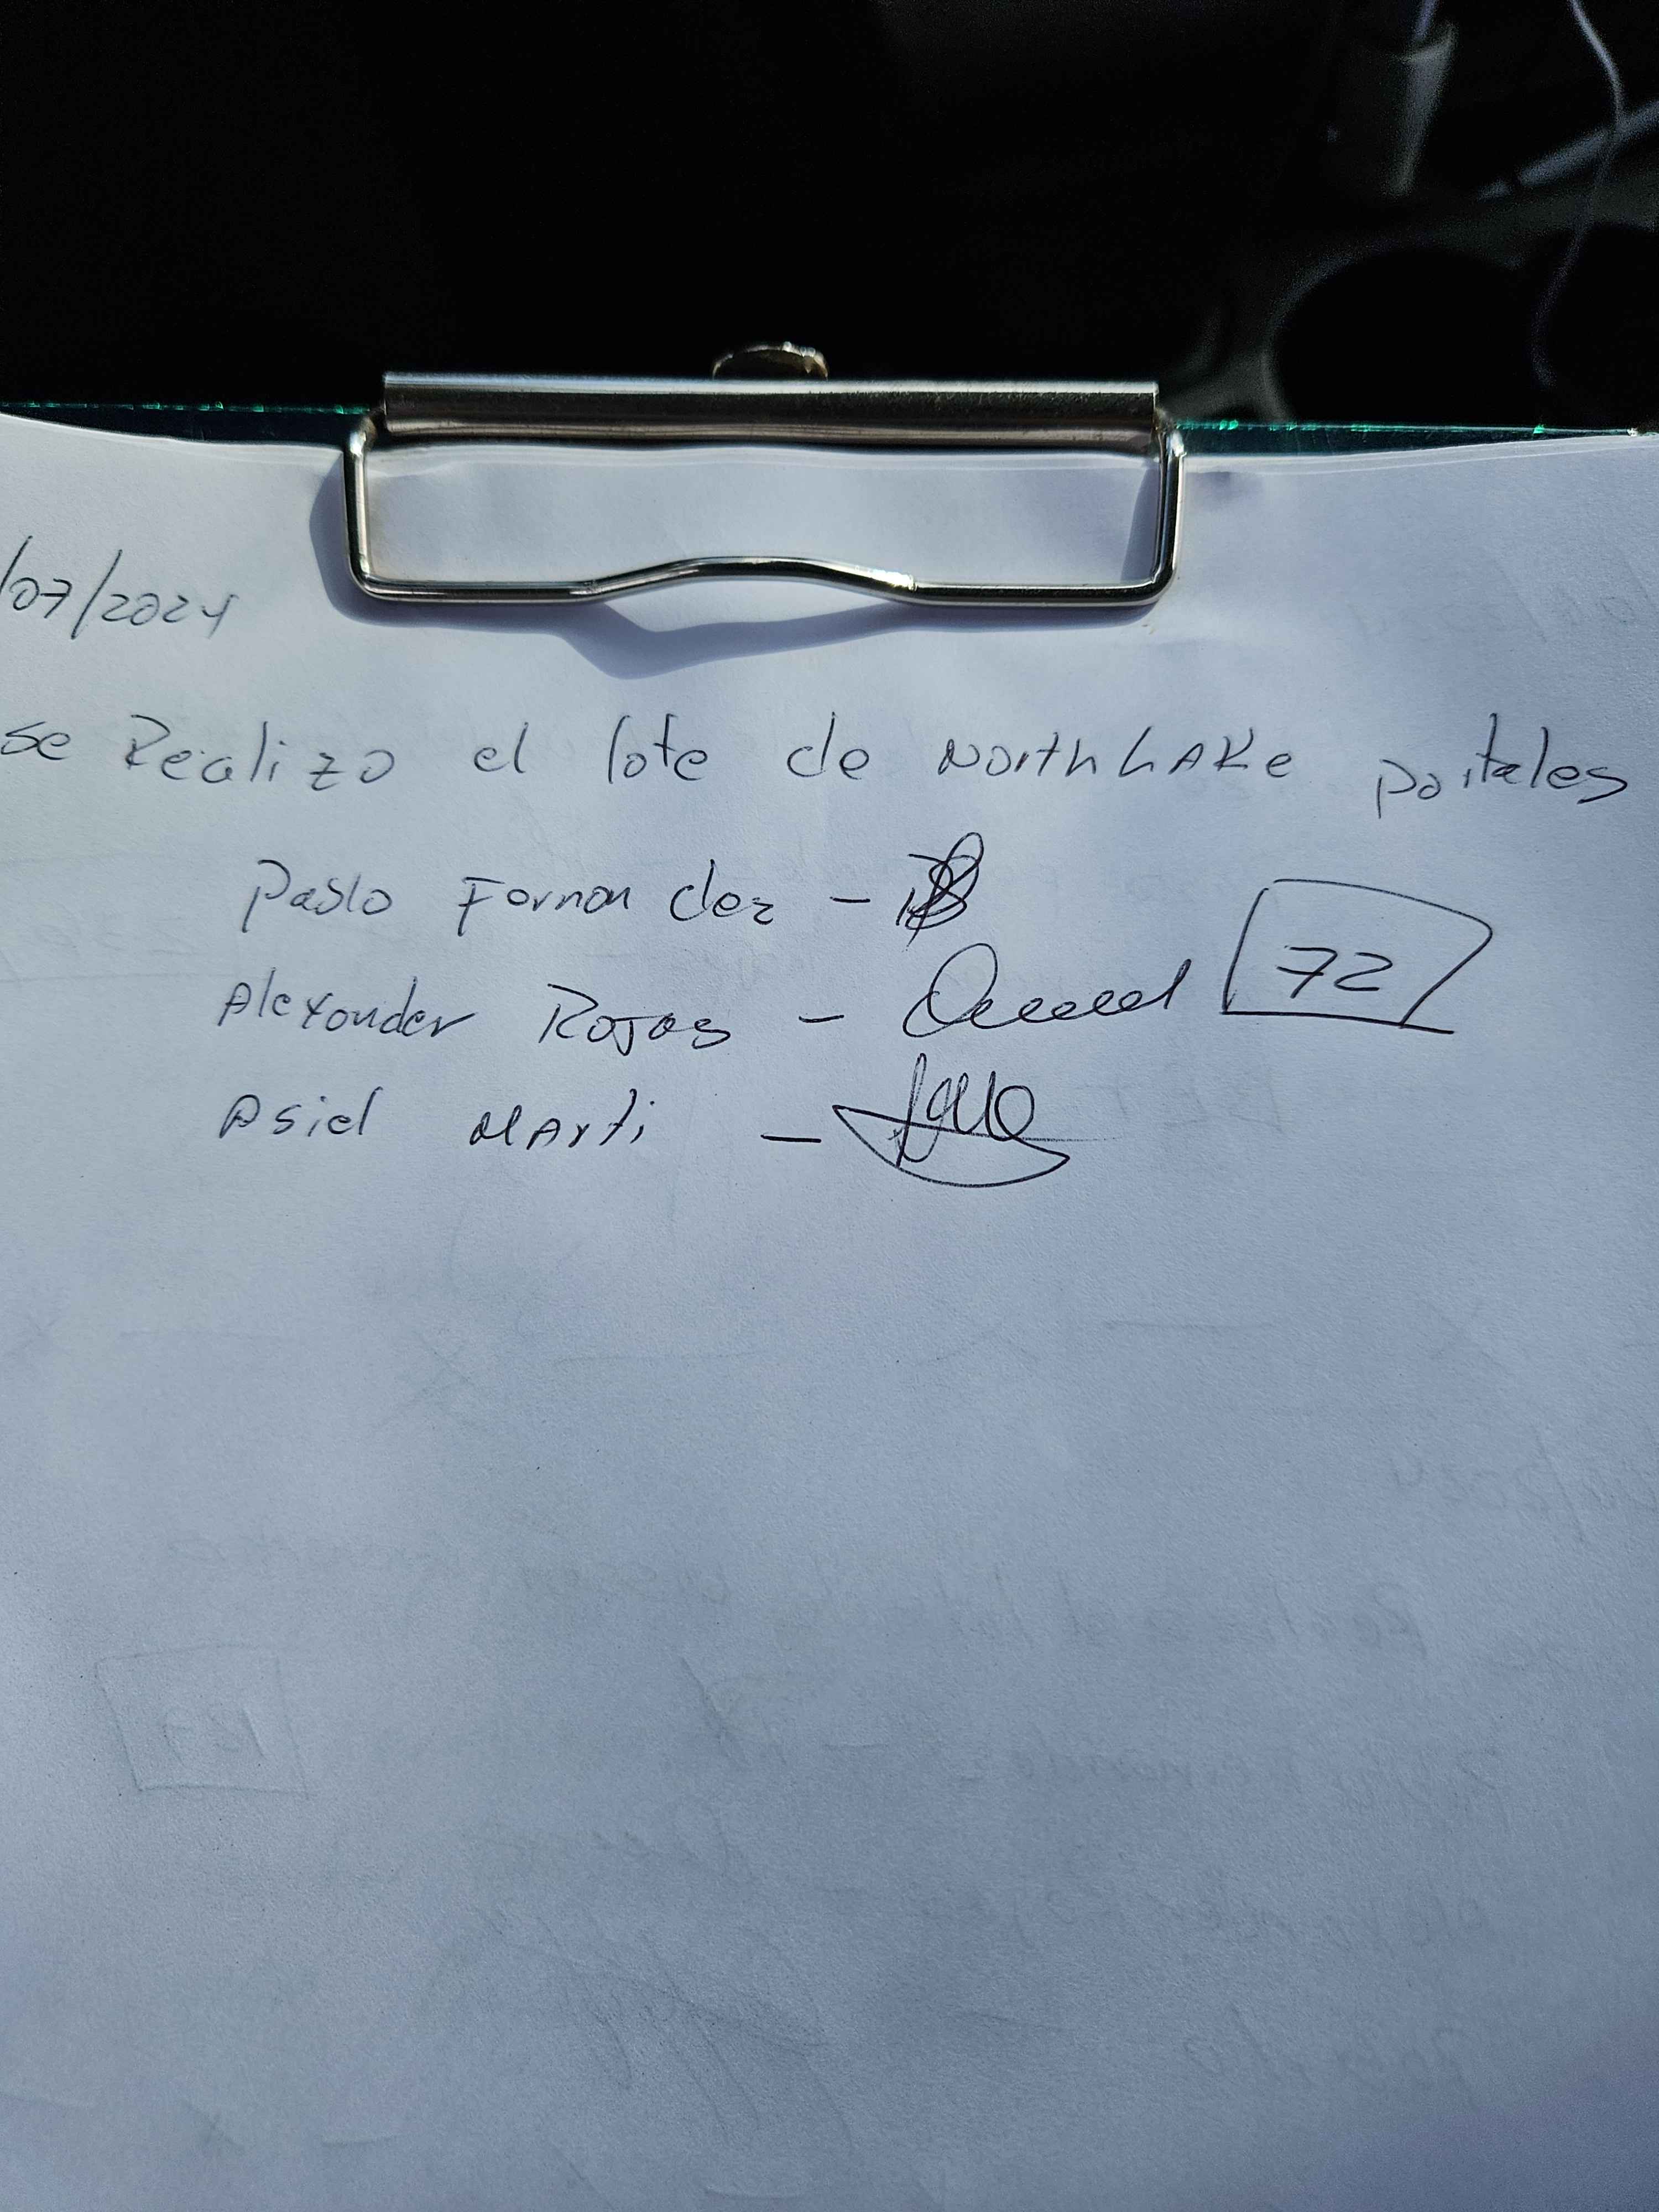 /07/2024
se Realizo el lote de NorthLAKe portales
Pablo Fernandez -
Alexander Rojas - 72
Asiel Marti -